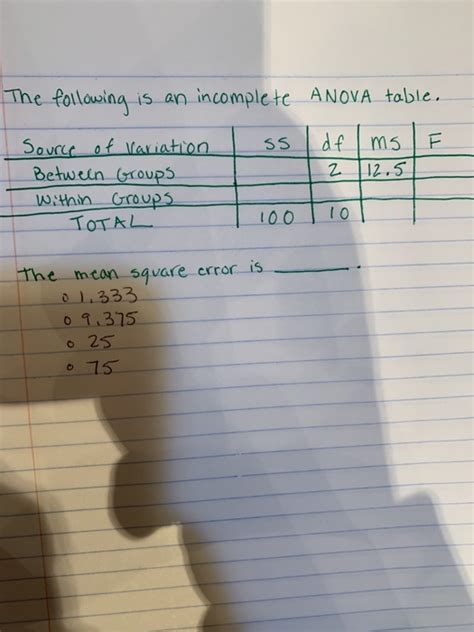 The following is an incomplete ANOVA table.
Source of Variation SS df ms F
Between Groups 2 12.5
Within Groups
TOTAL 100 10
The mean square error is ______.
o 1.333
o 9.375
o 25
o 75